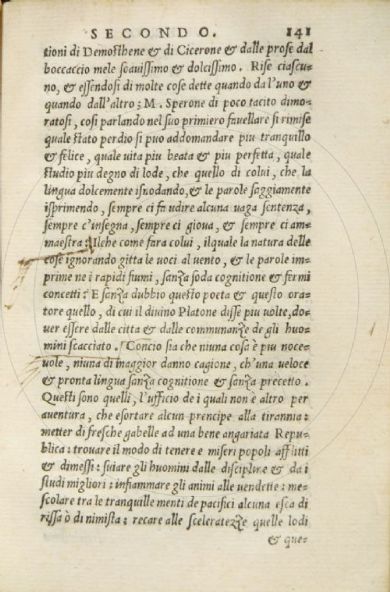 SECONDO. 141
tioni di Demosthene & di Cicerone & dalle prose dal
boccaccio mele soauissimo & dolcissimo. Rise ciascu=
no, & essendosi di molte cose dette quando da l'uno &
quando dall'altro; M. Sperone di poco tacito dimo=
ratosi, cosi parlando nel suo primiero fauellare si rimise
quale stato perdio si puo addomandare piu tranquillo
& felice, quale uita piu beata & piu perfetta, quale
studio piu degno di lode, che quello di colui, che la
lingua dolcemente isnodando, & le parole saggiamente
isprimendo, sempre ci fa udire alcuna uaga sentenza,
sempre c'insegna, sempre ci gioua, & sempre ci am=
maestra: Ilche come fara colui, ilquale la natura delle
cose ignorando gitta le uoci al uento, & le parole im=
prime ne i rapidi fiumi, sanza soda cognitione & fermi
concetti? E sanza dubbio questo poeta & questo ora=
tore quello, di cui il diuino Platone disse piu uolte, do=
uer essere dalle citta & dalle communanze de gli huo=
mini scacciato. Concio sia che niuna cosa è piu noce=
uole, ni una di maggior danno cagione, ch'una ueloce
& pronta lingua sanza cognitione & sanza precetto.
Questi sono quelli, l'ufficio de i quali non è altro per
auentura, che esortare alcun prencipe alla tirannia:
metter di fresche gabelle ad una bene angariata Repu=
blica: trouare il modo di tenere e miseri popoli afflitti
& dimessi: suiare gli huomini dalle discipline & da i
studi migliori: infiammare gli animi alle uendette: me=
scolare tra le tranquille menti de pacifici alcuna esca di
rissa ò di nimista: recare alle sceleratezze quelle lodi
& que=